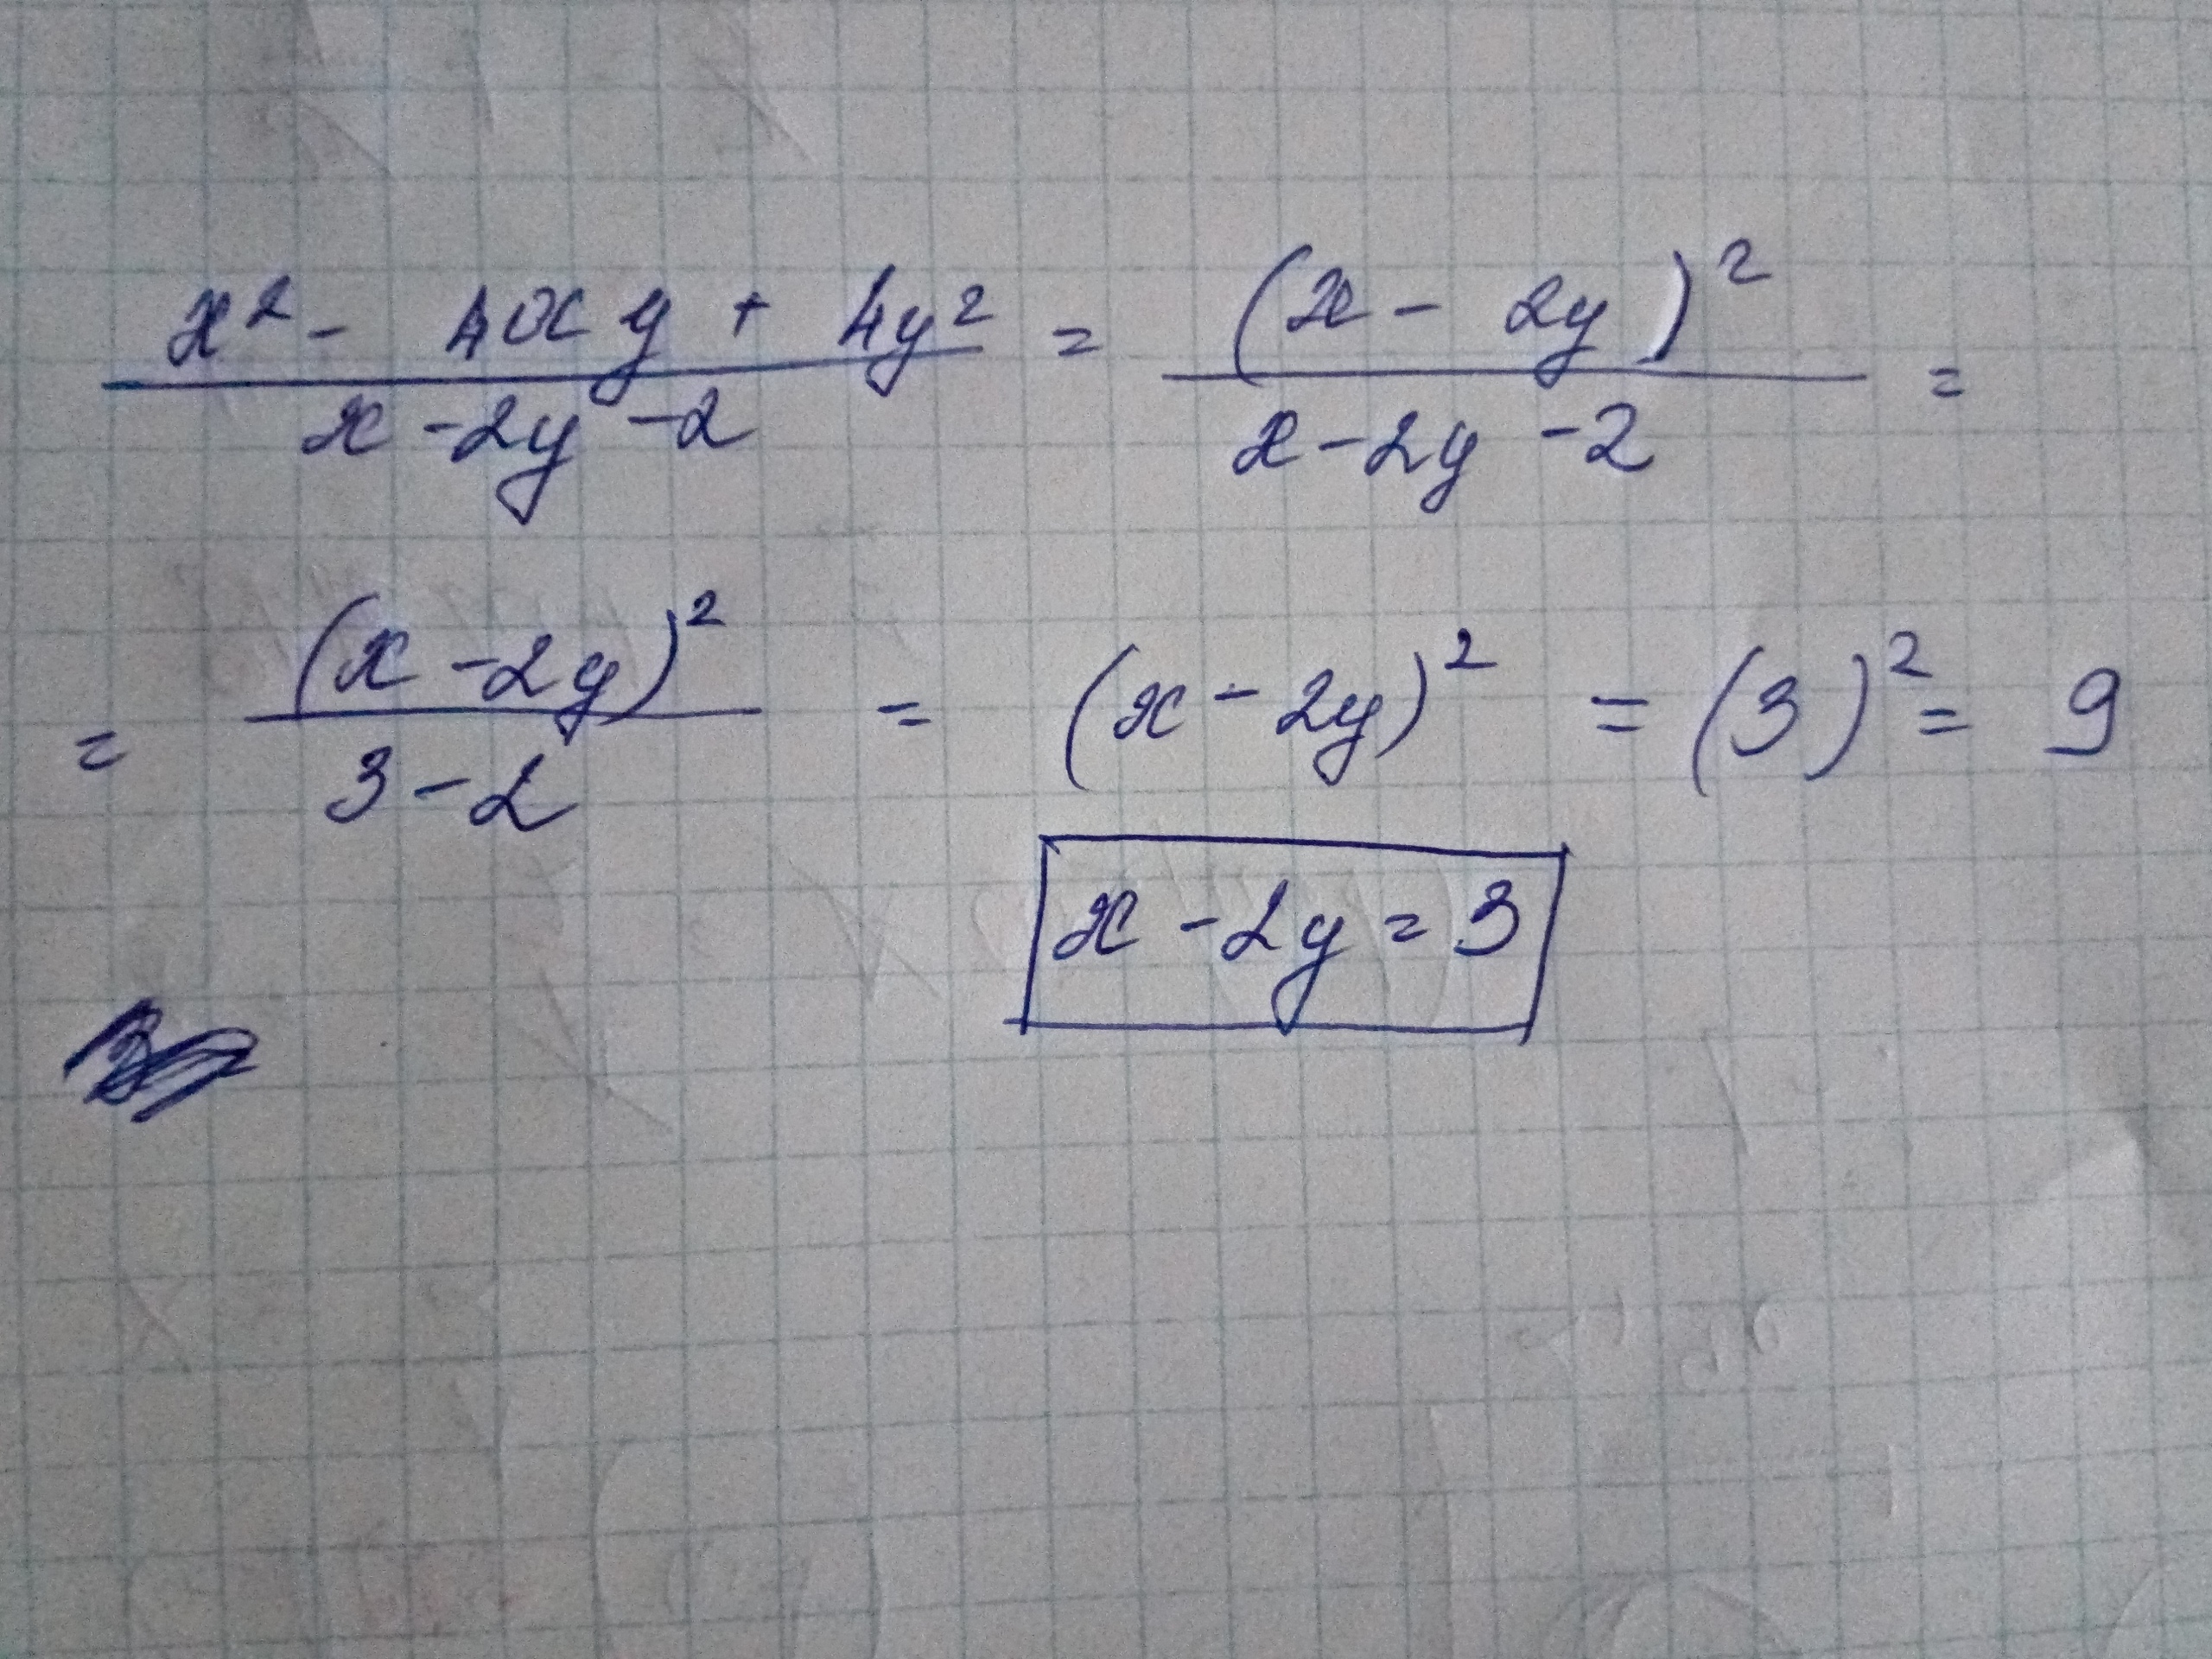 (x² - 4xy + 4y²)/(x - 2y - 2) = (x - 2y)²/(x - 2y - 2) =
= (x - 2y)²/(3 - 2) = (x - 2y)² = (3)² = 9
x - 2y = 3